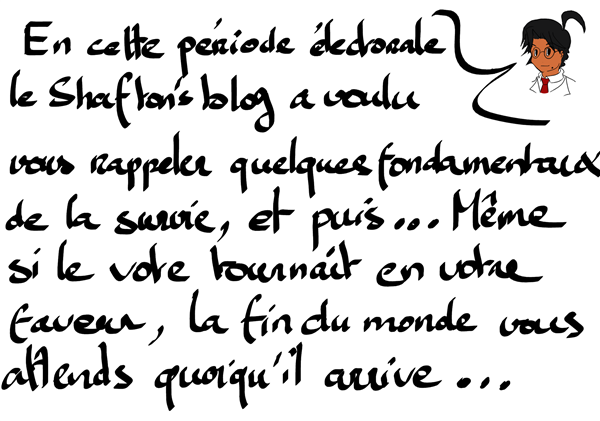 En cette période électorale
le Shafton's blog a voulu
vous rappeler quelques fondamentaux
de la survie, et puis... Même
si le vote tournait en votre
faveur, la fin du monde vous
attends quoiqu'il arrive...